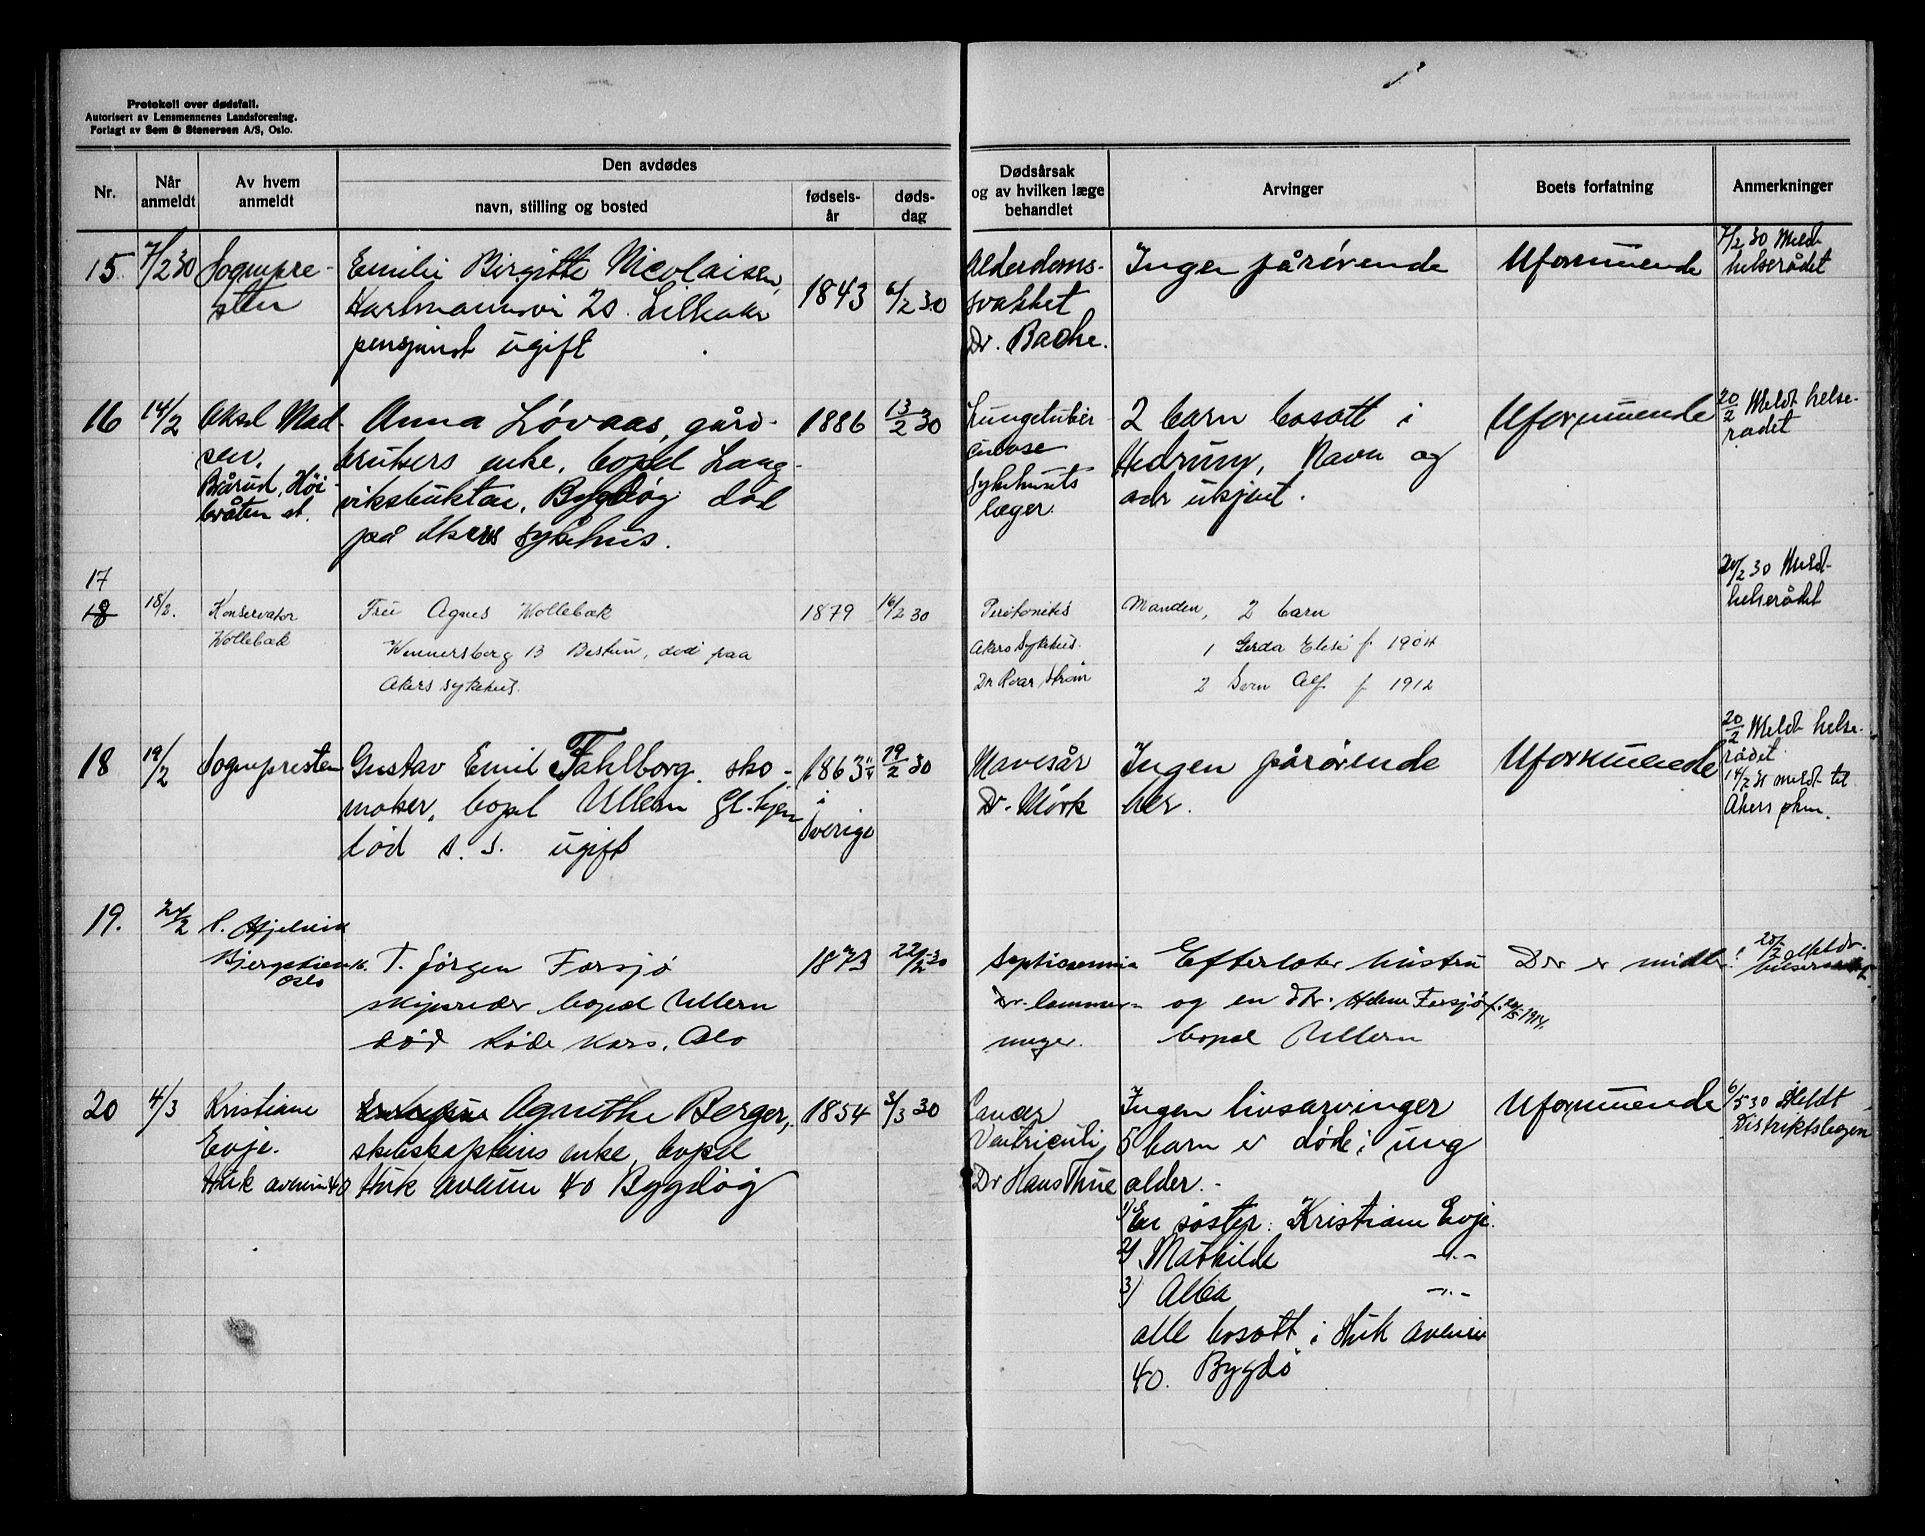 Protokoll over dødsfall.
Autorisert av Lensmennenes Landsforening.
Forlagt av Sem & Stenersen A/S, Oslo.
Nr.
Når anmeldt
Av hvem anmeldt
Den avdødes
navn, stilling og bosted
fødsels-år
døds-dag
Dødsårsak
og av hvilken læge
behandlet
Arvinger
Boets forfatning
Anmerkninger
15. 7/2 30 Sognepre-
sten
Emilie Birgitte Nicolaisen,
20 Lilleaker
pensjonist ugift
1843 6/2 30
Alderdoms-
svakhet
Dr. Bache.
Ingen pårørende
Uformuende
7/2 30 Meldt
helserådet
16 14/2 Aksel Mad-
sen,
Bårud, Høi-
bråten st.
Anna Løvaas, gård-
brukers enke, bopel Lang-
viksbukten, Bygdøy død
på Akers sykehus.
1886 13/2 30
Lungetuber
culose
Sykehusets
læger
2 barn bosatt i
Hedrum, Navn og
adr ukjent.
Uformuende
20/2 Meldt helse-
rådet
17
18 18/2. Konservator
Wollebæk
Fru Agnes Wollebæk
Wennersborg 13 Bestun, død paa
Akers sykehus.
1879 16/2 30
Peritonitis
Akers Sykehus.
Dr Roar Strøm
Manden, 2 barn
1 Gerda Elise f 1904
2 Sørn Alf f 1912
20/2 30 Meldt
helserådet
18 19/2 Sognepresten
Gustav Emil Fahlborg. sko-
maker, bopel Ullern gl.hjem
død s. s. ugift
1863
i
Sverige
19/2 30
Mavesår
Dr. Mørk
Ingen pårørende
her.
Uformuende
20/2 Meldt helse-
rådet
14/2 31 meldt til
Akers
19. 24/2
Oslo
T. Jörgen Forsjø
skipsreder bopel Ullern
død Røde Kors, Oslo
1873 22/2-30
Septicaemia
Dr.
Efterlater hustru
og en dtr. Helene Forsjø f. 1914.
bopæl Ullern
Der er midler
20/2 Meldt
helseraadet
20 4/3 Kristiane
Evje.
Huk avenue 40
Agnethe Berger,
skibskapteins enke, bopel
Huk avenue 40 Bygdøy
1854 3/3 30
Cancer
Ventriculi
Dr Hans Thue
Ingen livsarvinger
5 barn er døde i ung
alder.-
1) En søster: Kristiane Evje.
2) Mathilde -"-
3) Alba -"-
alle bosatt i Huk avenue
40. Bygdø
Uformuende
6/5 30 Meldt
Distriktslegen